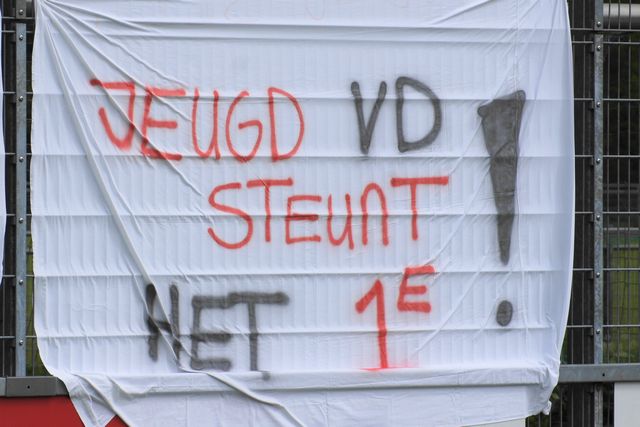 JEUGD VD
STEUNT !
HET 1E